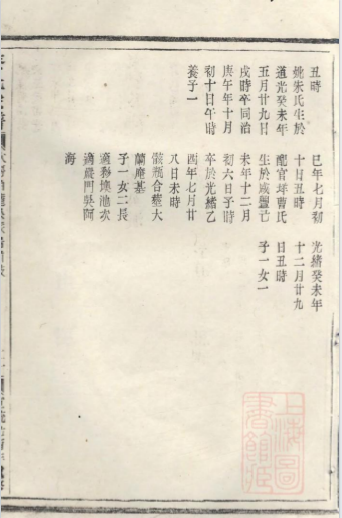 丑時
妣朱氏生於
道光癸未年
五月廿九日
戌時卒同治
庚午年十月
初十日午時
養子一
巳年七月初
十日丑時
配官埠曹氏
生於咸豐己
未年十二月
初六日子時
卒於光緒乙
酉年七月廿
八日未時
骸瓶合塟大
蘭庵基
子一女二長
適務塽池次
適嚴門吳阿
海
光緒癸未年
十二月廿九
日丑時
子一女一
上海圖
書館藏